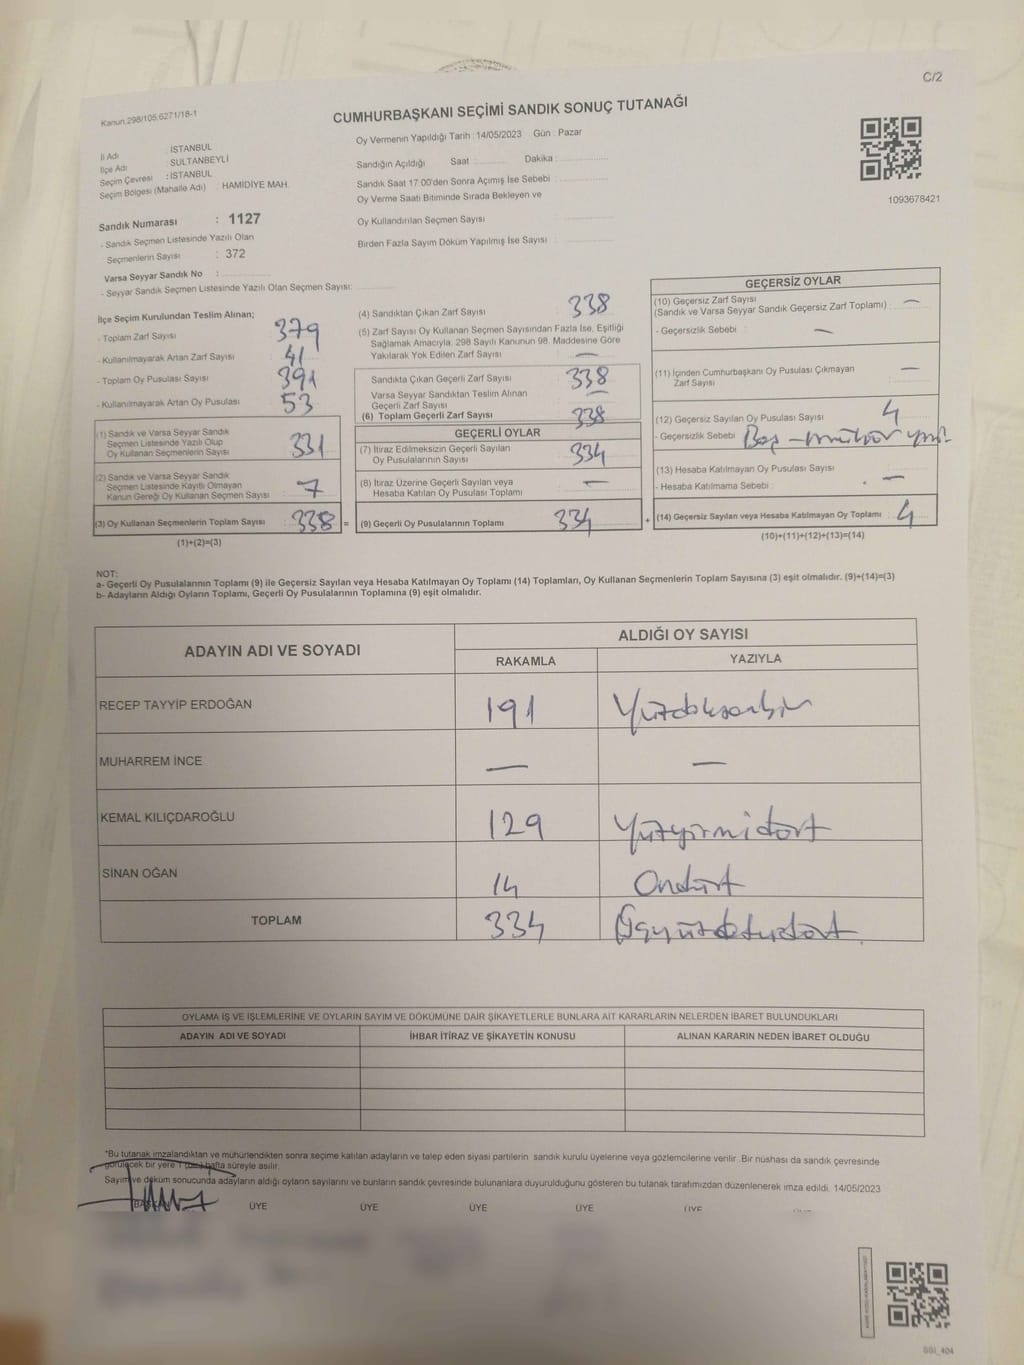 C/2
Kanun.298/105,6271/18-1
CUMHURBAŞKANI SEÇİMİ SANDIK SONUÇ TUTANAĞI
İl Adı : İSTANBUL
İlçe Adı : SULTANBEYLİ
Seçim Çevresi : İSTANBUL
Seçim Bölgesi (Mahalle Adı) HAMİDİYE MAH.
Sandık Numarası : 1127
- Sandık Seçmen Listesinde Yazılı Olan
Seçmenlerin Sayısı : 372
Varsa Seyyar Sandık No :
- Seyyar Sandık Seçmen Listesinde Yazılı Olan Seçmen Sayısı:
Oy Vermenin Yapıldığı Tarih : 14/05/2023 Gün : Pazar
Sandığın Açıldığı Saat Dakika :
Sandık Saat 17.00'den Sonra Açımış İse Sebebi :
Oy Verme Saati Bitiminde Sırada Bekleyen ve
Oy Kullandırılan Seçmen Sayısı
Birden Fazla Sayım Döküm Yapılmış İse Sayısı :
1093678421
İlçe Seçim Kurulundan Teslim Alınan;
- Toplam Zarf Sayısı 379
- Kullanılmayarak Artan Zarf Sayısı 41
- Toplam Oy Pusulası Sayısı 391
- Kullanılmayarak Artan Oy Pusulası 53
(1) Sandık ve Varsa Seyyar Sandık
Seçmen Listesinde Yazılı Olup
Oy Kullanan Seçmenlerin Sayısı 331
(2) Sandık ve Varsa Seyyar Sandık
Seçmen Listesinde Kayıtlı Olmayan
Kanun Gereği Oy Kullanan Seçmen Sayısı 7
(3) Oy Kullanan Seçmenlerin Toplam Sayısı : 338 =
(1)+(2)=(3)
(4) Sandıktan Çıkan Zarf Sayısı 338
(5) Zarf Sayısı Oy Kullanan Seçmen Sayısından Fazla İse, Eşitliği
Sağlamak Amacıyla, 298 Sayılı Kanunun 98. Maddesine Göre
Yakılarak Yok Edilen Zarf Sayısı —
Sandıkta Çıkan Geçerli Zarf Sayısı 338
Varsa Seyyar Sandıktan Teslim Alınan
Geçerli Zarf Sayısı —
(6) Toplam Geçerli Zarf Sayısı 338
GEÇERLİ OYLAR
(7) İtiraz Edilmeksizin Geçerli Sayılan
Oy Pusulalarının Sayısı 334
(8) İtiraz Üzerine Geçerli Sayılan veya
Hesaba Katılan Oy Pusulası Toplamı —
(9) Geçerli Oy Pusulalarının Toplamı 334 +
GEÇERSİZ OYLAR
(10) Geçersiz Zarf Sayısı —
(Sandık ve Varsa Seyyar Sandık Geçersiz Zarf Toplamı) :
- Geçersizlik Sebebi : —
(11) İçinden Cumhurbaşkanı Oy Pusulası Çıkmayan
Zarf Sayısı —
(12) Geçersiz Sayılan Oy Pusulası Sayısı 4
- Geçersizlik Sebebi
(13) Hesaba Katılmayan Oy Pusulası Sayısı
- Hesaba Katılmama Sebebi : —
(14) Geçersiz Sayılan veya Hesaba Katılmayan Oy Toplamı : 4
(10)+(11)+(12)+(13)=(14)
NOT:
a- Geçerli Oy Pusulalarının Toplamı (9) ile Geçersiz Sayılan veya Hesaba Katılmayan Oy Toplamı (14) Toplamları, Oy Kullanan Seçmenlerin Toplam Sayısına (3) eşit olmalıdır. (9)+(14)=(3)
b- Adayların Aldığı Oyların Toplamı, Geçerli Oy Pusulalarının Toplamına (9) eşit olmalıdır.
ADAYIN ADI VE SOYADI
ALDIĞI OY SAYISI
RAKAMLA YAZIYLA
RECEP TAYYİP ERDOĞAN 191 Yüzdoksanbir
MUHARREM İNCE — —
KEMAL KILIÇDAROĞLU 129 Yüzyirmidört
SİNAN OĞAN 14 Ondört
TOPLAM 334 Üçyüzotuzdört
OYLAMA İŞ VE İŞLEMLERİNE VE OYLARIN SAYIM VE DÖKÜMÜNE DAİR ŞİKAYETLERLE BUNLARA AİT KARARLARIN NELERDEN İBARET BULUNDUKLARI
ADAYIN ADI VE SOYADI İHBAR İTİRAZ VE ŞİKAYETİN KONUSU ALINAN KARARIN NEDEN İBARET OLDUĞU
*Bu tutanak imzalandıktan ve mühürlendikten sonra seçime katılan adayların ve talep eden siyasi partilerin sandık kurulu üyelerine veya gözlemcilerine verilir. Bir nüshası da sandık çevresinde
görülecek bir yere 1 hafta süreyle asılır.
Sayım ve döküm sonucunda adayların aldığı oyların sayılarını ve bunların sandık çevresinde bulunanlara duyurulduğunu gösteren bu tutanak tarafımızdan düzenlenerek imza edildi. 14/05/2023
BAŞKAN ÜYE ÜYE ÜYE ÜYE ÜYE
SSI_404